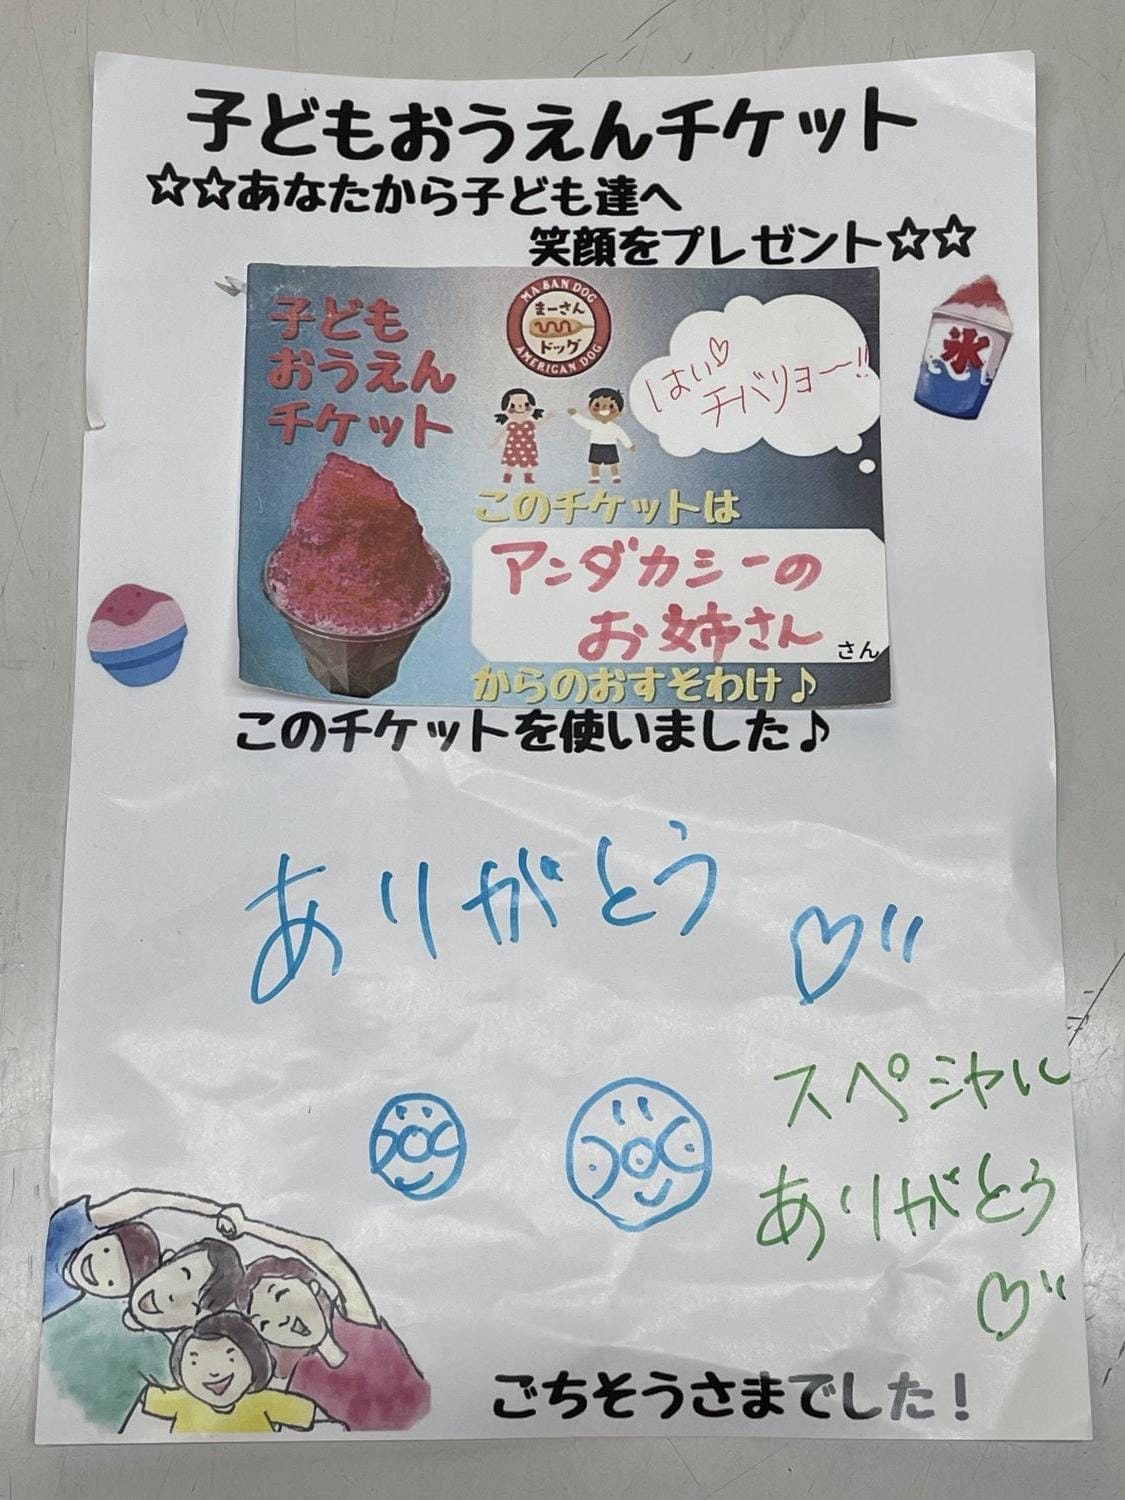 子どもおうえんチケット
☆☆あなたから子ども達へ
笑顔をプレゼント☆☆
子ども
おうえん
チケット
MA SAN DOG
まーさん
ドッグ
AMERICAN DOG
はい♡
チバリヨー!!
氷
このチケットは
アンダカシーの
お姉さん
さん
からのおすそわけ♪
このチケットを使いました♪
ありがとう
♡"
スペシャル
ありがとう
♡"
ごちそうさまでした！